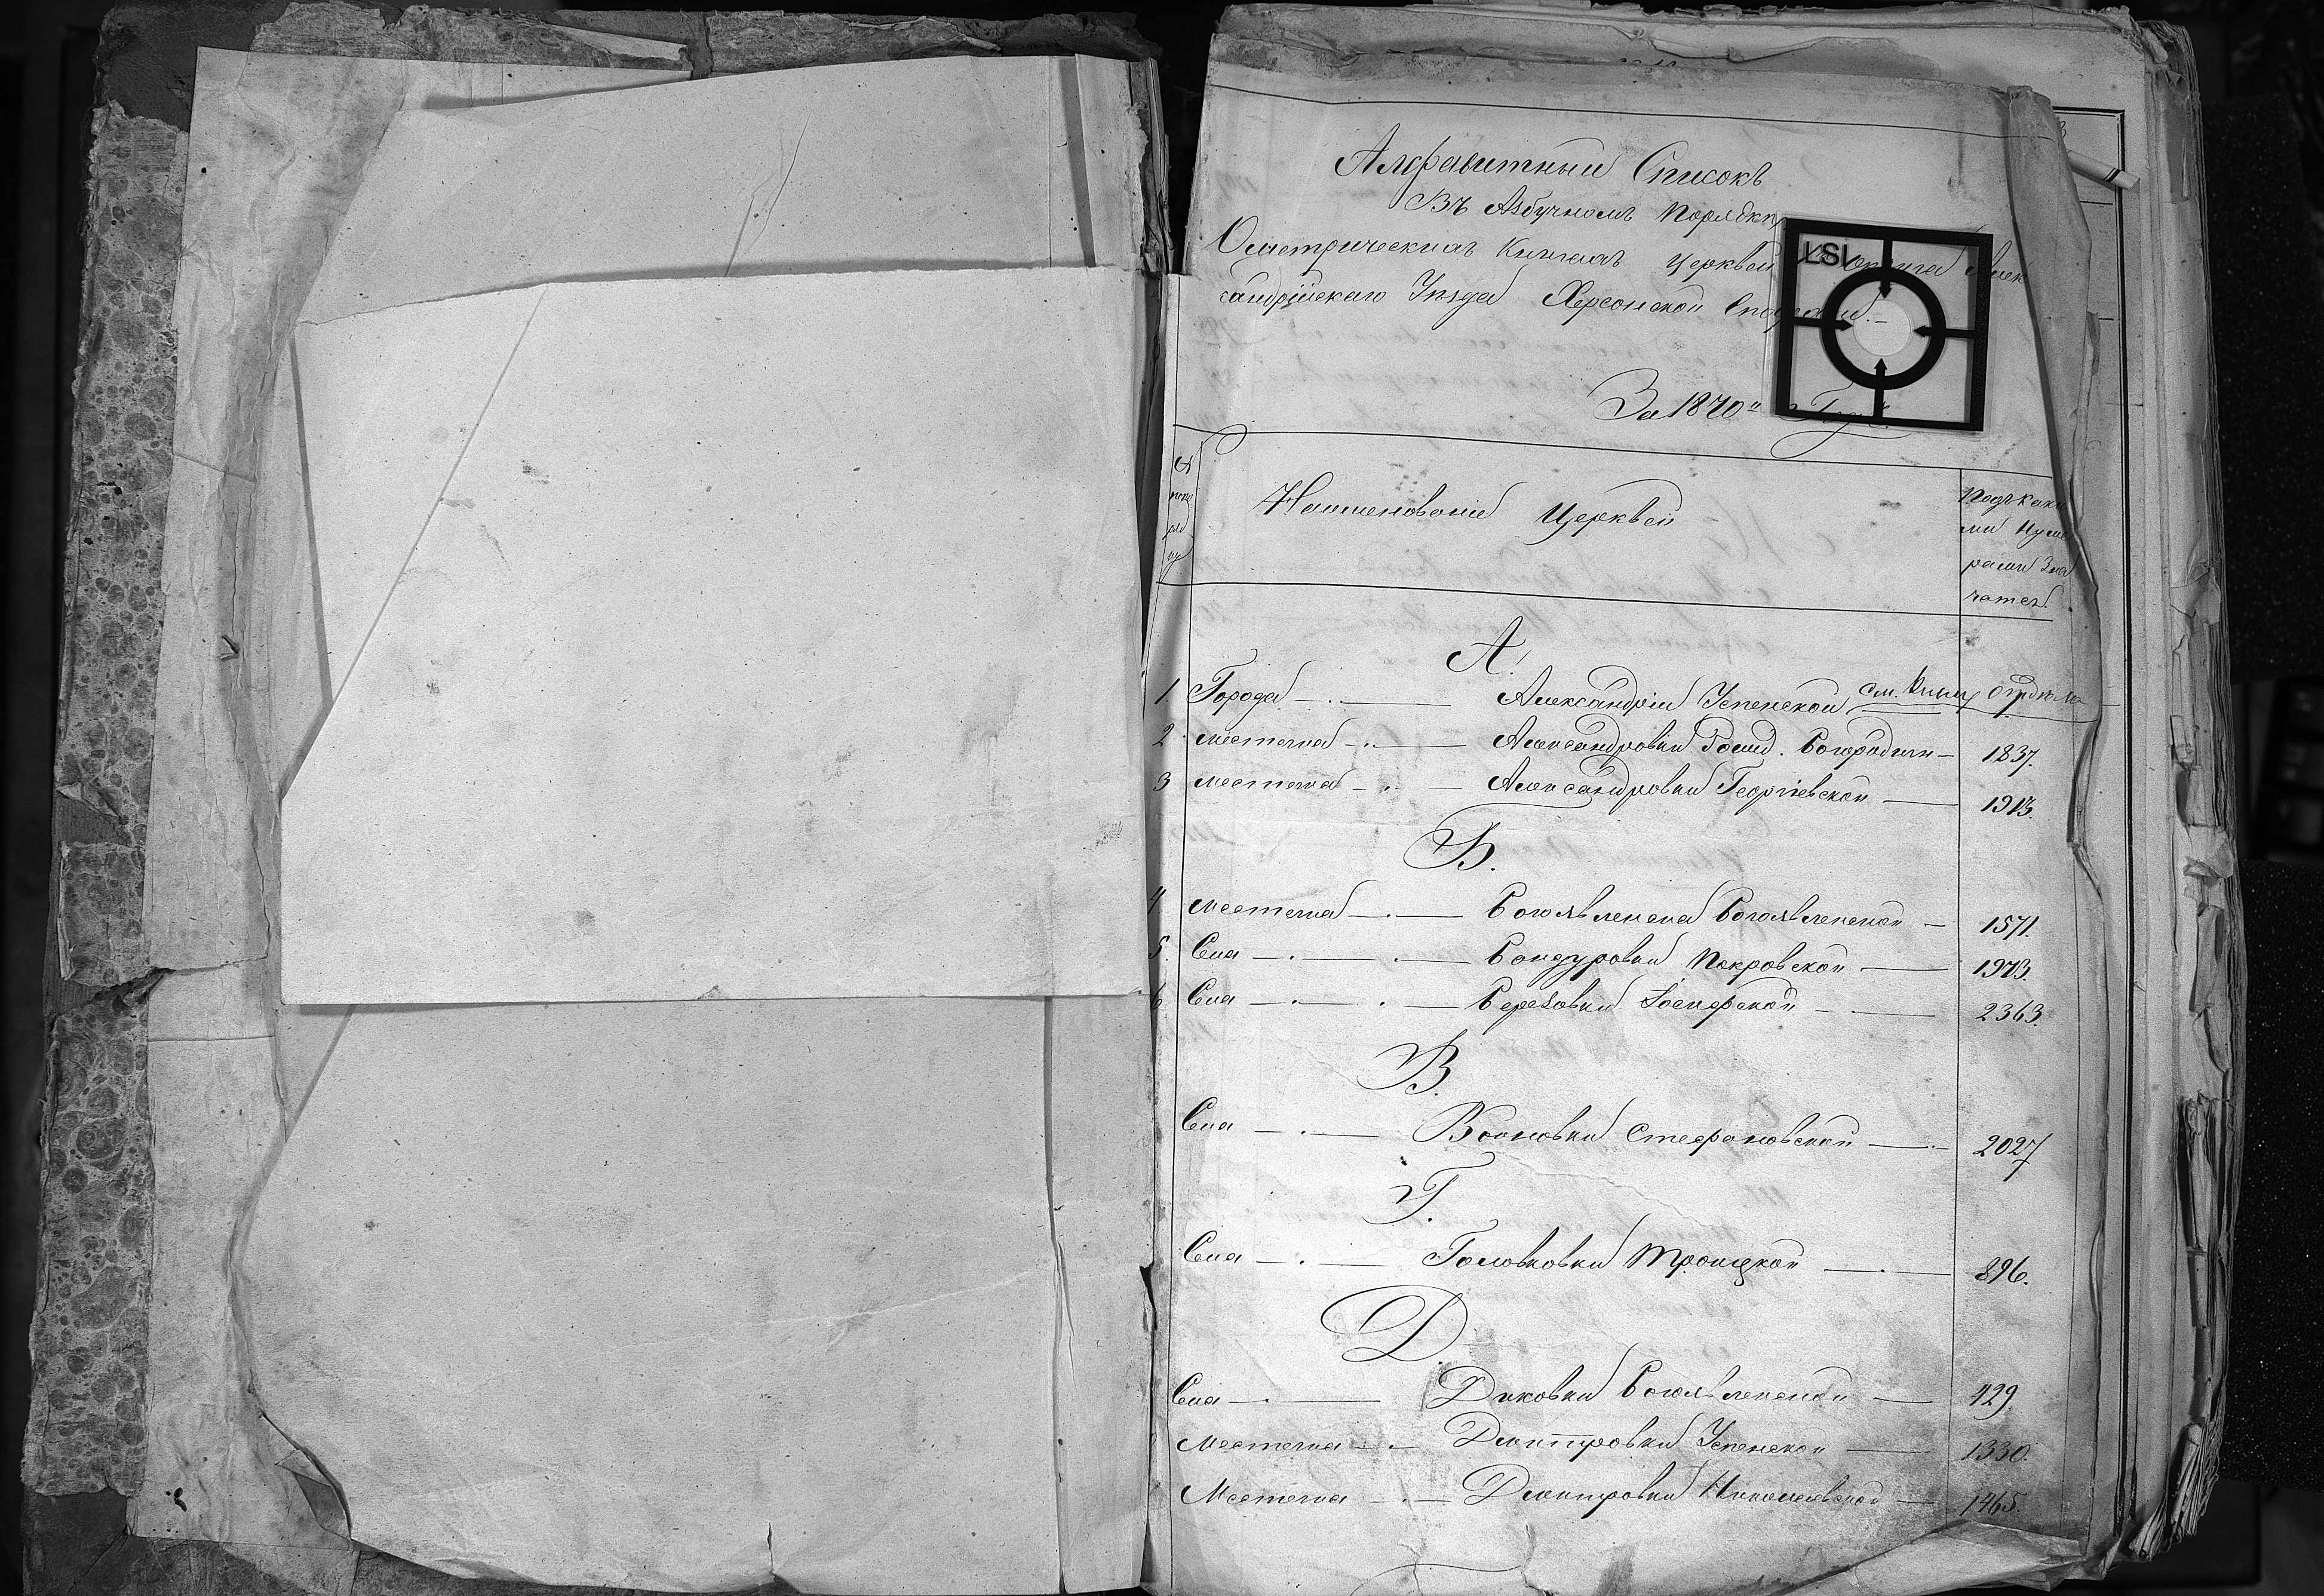 Алфавитный Списокъ
Въ Азбучномъ Порядкѣ
О метрическихъ Книгахъ церквей Алек
сандрійскаго Уѣзда Херсонской
LSI
За 1870
Наименованіе Церквей
Подъ каки
ми Нуме
рами Зна
чатся
А.
1 Города Александріи Успенской см. Книгу
2 местечка Александровки Рожд. Богородичн 1837.
3 местечка Александровки Георгіевской 1913.
Б.
4. местечка Богоявленска Богоявленской 1571.
5. Села Бондуровки Покровской 1973.
6 Села Березовки Іосифской 2363.
В.
Села Войновки Стефановской 2027
Г.
Села Головковки Троицкой 896.
Д.
Села Диковки Богоявленской 429.
местечка Дмитровки Успенской 1330.
Местечка Дмитровки Николаевской 1465.